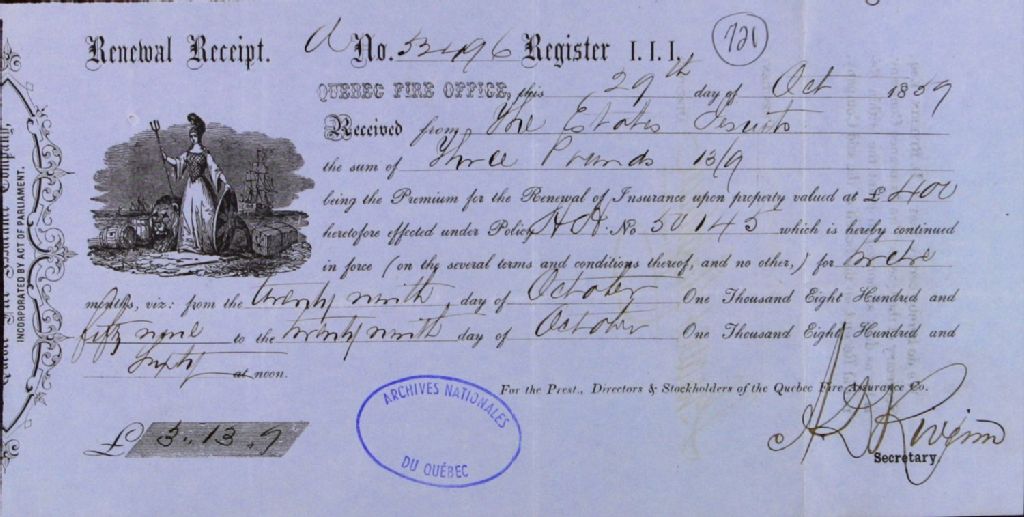 721
Renewal Receipt. No. 53496 Register I. I. I.
QUEBEC FIRE OFFICE, this 29th day of Oct 1859
Received from The Estates Jesuits
the sum of Three Pounds 13/9
being the Premium for the Renewal of Insurance upon property valued at £ 400
heretofore effected under Policy AA. No 50145 which is hereby continued
in force (on the several terms and conditions thereof, and no other,) for twelve
months, viz: from the twenty ninth day of October One Thousand Eight Hundred and
fifty nine to the twenty ninth day of October One Thousand Eight Hundred and
Sixty at noon.
For the Prest., Directors & Stockholders of the Quebec Fire Assurance Co.
£ 3.. 13.. 9
Secretary.
ARCHIVES NATIONALES
DU QUÉBEC
Quebec Fire Assurance Company,
INCORPORATED BY ACT OF PARLIAMENT.